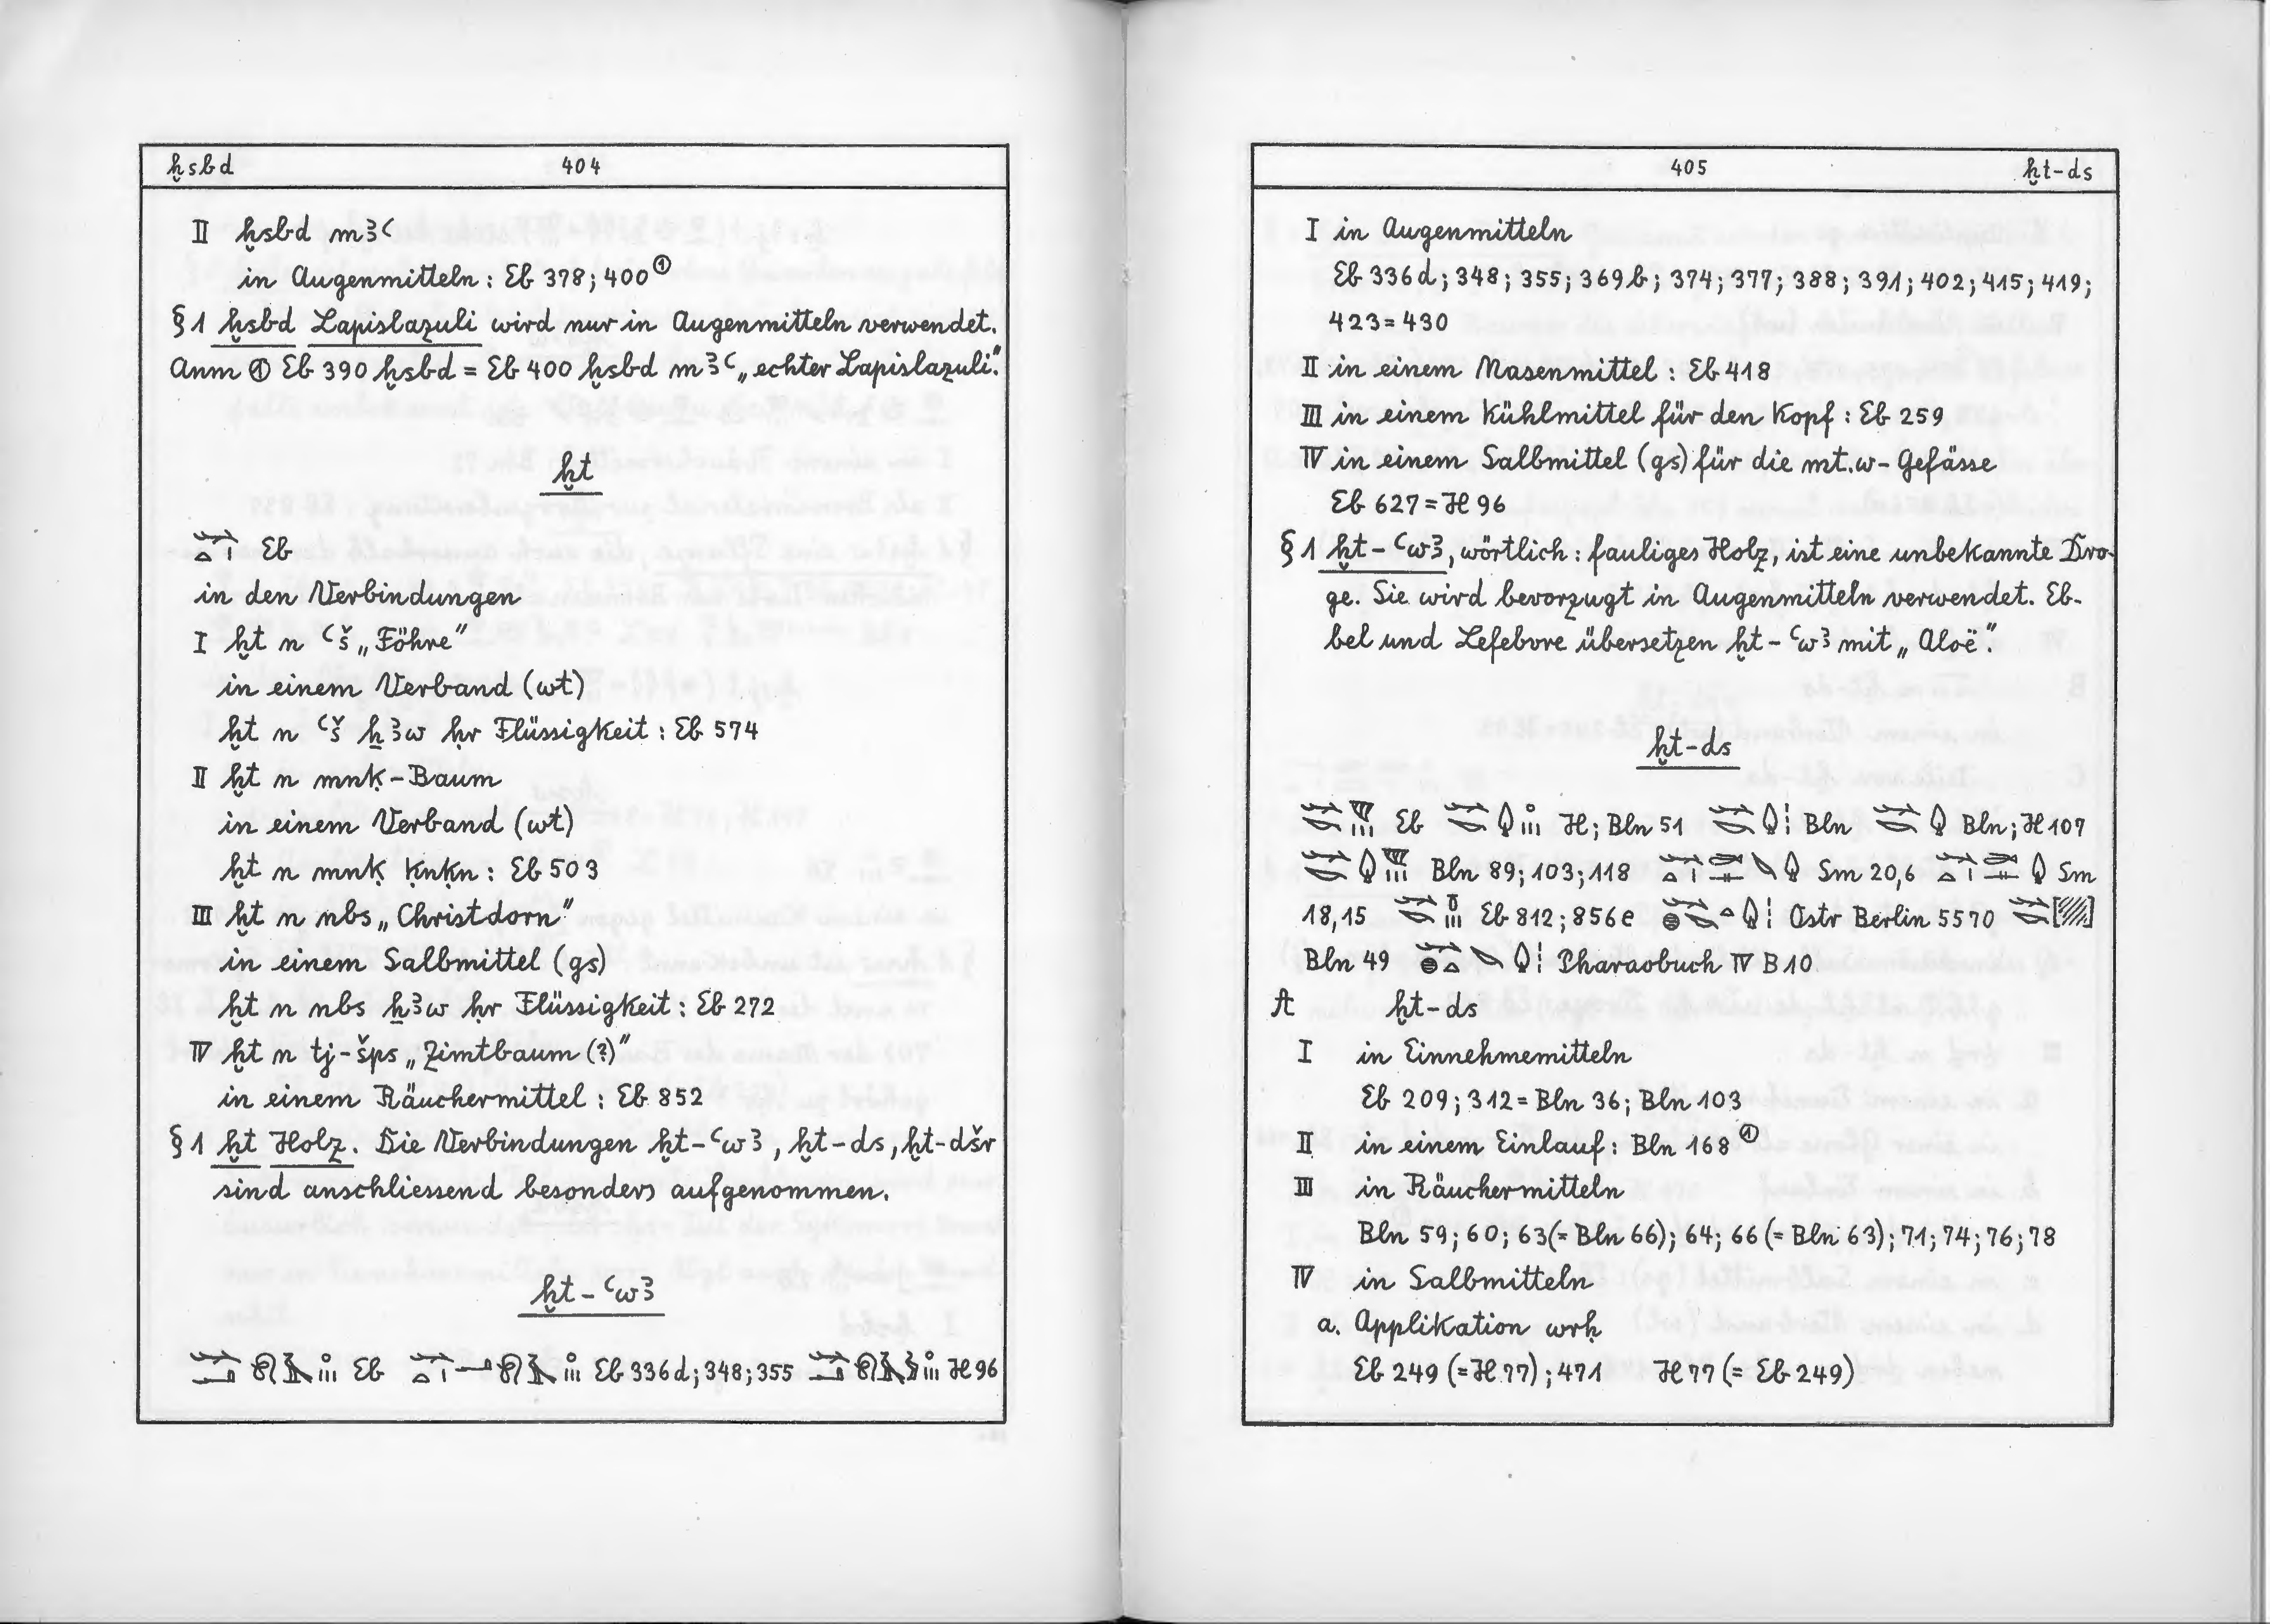 ḫsbd 404
II ḫsbd mꜣꜥ
in Augenmitteln: Eb 378; 400 ①
§ 1 ḫsbd Lapislazuli wird nur in Augenmitteln verwendet.
Anm ① Eb 390 ḫsbd = Eb 400 ḫsbd mꜣꜥ „echter Lapislazuli."
ḫt
𓆱𓏏𓏤 Eb
in den Verbindungen
I ḫt n ꜥš „Föhre"
in einem Verband (wt)
ḫt n ꜥš ẖꜣw ḥr Flüssigkeit: Eb 574
II ḫt n mnḳ-Baum
in einem Verband (wt)
ḫt n mnḳ ḳnḳn: Eb 503
III ḫt n nbs „Christdorn"
in einem Salbmittel (gs)
ḫt n nbs ẖꜣw ḥr Flüssigkeit: Eb 272
IV ḫt n tj-šps „Zimtbaum (?)"
in einem Räuchermittel: Eb 852
§ 1 ḫt Holz. Die Verbindungen ḫt-ꜥwꜣ, ḫt-ds, ḫt-dšr
sind anschliessend besonders aufgenommen.
ḫt-ꜥwꜣ
Eb Eb 336d; 348; 355 H 96
405 ḫt-ds
I in Augenmitteln
Eb 336d; 348; 355; 369b; 374; 377; 388; 391; 402; 415; 419;
423 = 430
II in einem Nasenmittel: Eb 418
III in einem Kühlmittel für den Kopf: Eb 259
IV in einem Salbmittel (gs) für die mt.w-Gefässe
Eb 627 = H 96
§ 1 ḫt-ꜥwꜣ, wörtlich: fauliges Holz, ist eine unbekannte Dro-
ge. Sie wird bevorzugt in Augenmitteln verwendet. Eb-
bel und Lefebvre übersetzen ḫt-ꜥwꜣ mit „Aloë".
ḫt-ds
Eb H; Bln 51 Bln Bln; H 107
Bln 89; 103; 118 Sm 20,6 Sm
18,15 Eb 812; 856e Ostr Berlin 5570
Bln 49 Pharaobuch IV B 10
A ḫt-ds
I in Einnehmemitteln
Eb 209; 312 = Bln 36; Bln 103
II in einem Einlauf: Bln 168 ①
III in Räuchermitteln
Bln 59; 60; 63 (= Bln 66); 64; 66 (= Bln 63); 71; 74; 76; 78
IV in Salbmitteln
a. Applikation wrḥ
Eb 249 (= H 77); 471 H 77 (= Eb 249)